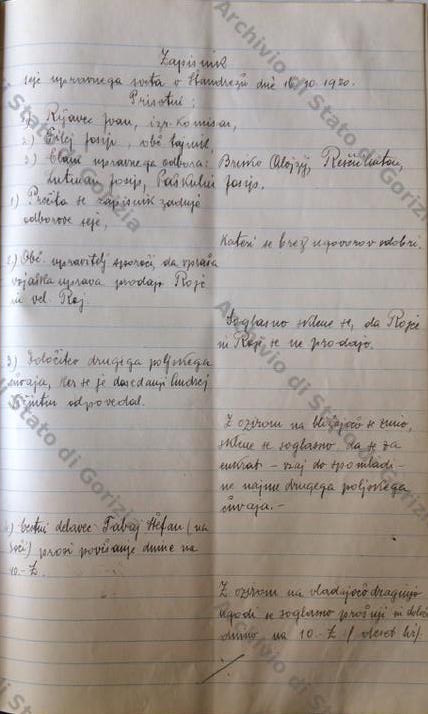 Zapisnik
seje upravnega sveta v Standrežu dné 16.10.1920.
Prisotni:
1) Rijavec Ivan, izr. komisar,
2) Josip, obč. tajnik,
3) Člani upravnega odbora: Brisko Alojzij, Anton,
Josip, Paškulin Josip.
1) Prečita se zapisnik zadnje
odborove seje,
Kateri se brez ugovorov odobri.
2) Obč. upravitelj sporoči, da vpraša
vojaška uprava prodajo Rojc
in vel. Roj.
Soglasno sklene se, da Rojce
in Roj se ne prodajo.
3) Določitev drugega poljskega
čuvaja, ker se je dosedanji Andrej
odpovedal.
Z ozirom na bližajočo se zimo,
sklene se soglasno, da se za
enkrat - vsaj do spomladi -
ne najme drugega poljskega
čuvaja. -
4) Cestni delavec Tabaj Štefan (na
) prosi povišanje dnine na
10.- £.
Z ozirom na vladajočo draginjo
ugodi se soglasno prošnji in določi
dnino na 10.- £ (deset lir).
Archivio di Stato di Gorizia